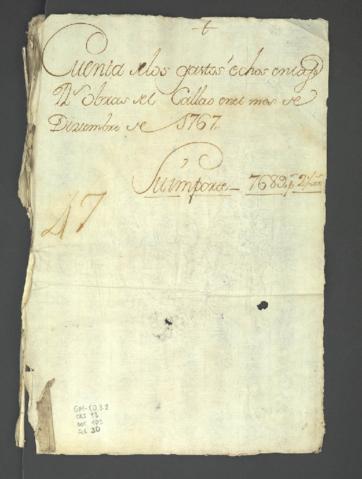 †
Cuenta de los gastos echos en las
Rs obras del Callao en el mes de
Diziembre de 1767.
Su importe 7682 ps 2
47
GM-CO 3.2